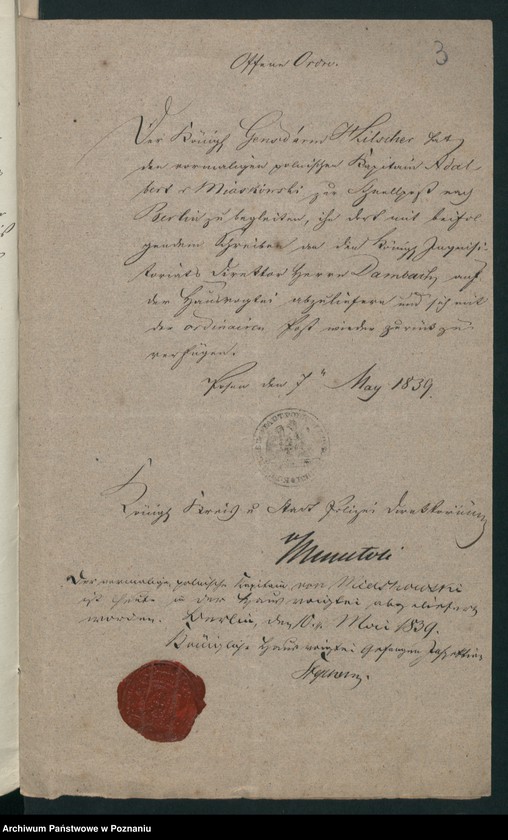 3
Offene Ordr.
Der Königl Gensd'arm Hilscher hat
den vormaligen polnischen Kapitain Adal-
bert v Miaskowski zur Schnellpost nach
Berlin zu begleiten, ihn dort mit beifol
gendem Schreiben an den Königl Inquisi-
toriats Direktor Herrn Dambach auf
der Hausvogtei abzuliefern und sich mit
der ordinairen Post wieder zurück zu
verfügen.
Posen den 7 May 1839.
Königl Kreis u Stadt Polizei Direktorium
v Minutoli
Der vormalige polnische Kapitain von Miaskowski
ist heute in der Hausvoigtei abgeliefert
worden. Berlin, den 10 Mai 1839.
Königliche Hausvoigtei Gefangen
Archiwum Państwowe w Poznaniu